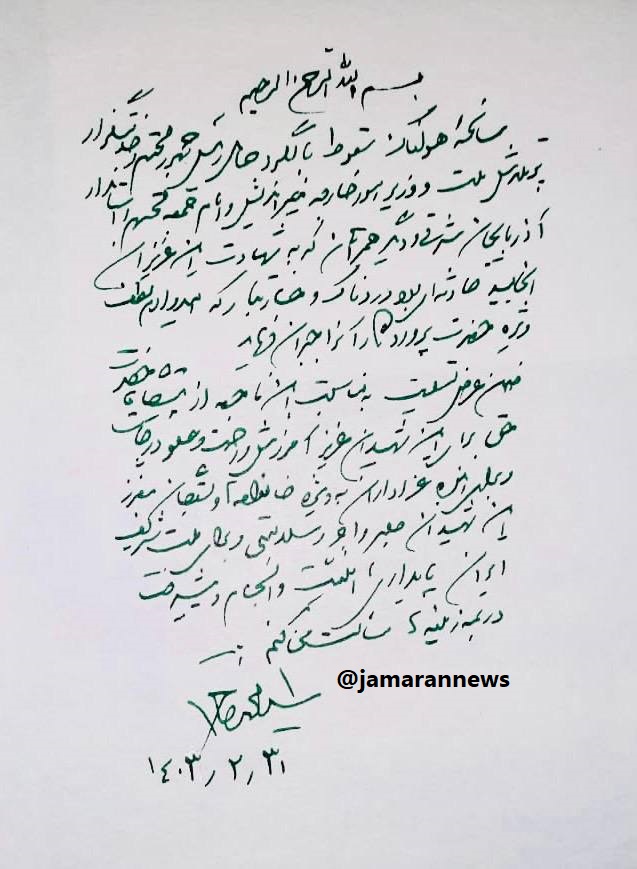 بسم الله الرحمن الرحیم
سانحهٔ هولناک سقوط بالگرد حامل رئیس جمهور محترم و خدمتگزار
پرتلاش ملت و وزیر امور خارجه خیراندیش و امام جمعه محترم و استاندار
آذربایجان شرقی و دیگر همراهان که به شهادت این عزیزان
انجامید حادثه‌ای بسیار دردناک و خسارتبار که امیدوارم لطف
ویژه حضرت پروردگار آنرا جبران فرماید
ضمن عرض تسلیت به مناسبت این فاجعه از پیشگاه حضرت
حق برای این شهیدان عزیز آمرزش و رحمت و علو درجات
و برای همه عزاداران به ویژه خانواده‌ها و بستگان معزز
این شهیدان صبر و اجر و سلامتی و برای ملت شریف
ایران پایداری، امنیت و انسجام و پیشرفت
در همه زمینه‌ها مسألت می‌کنم
سید محمد خاتمی
۱۴۰۳/۲/۳۱
@jamarannews